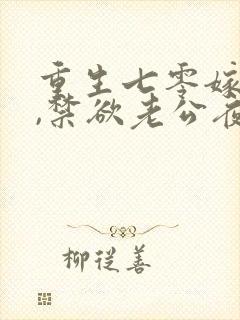 重生七零嫁
,禁欲老公夜
柳從善